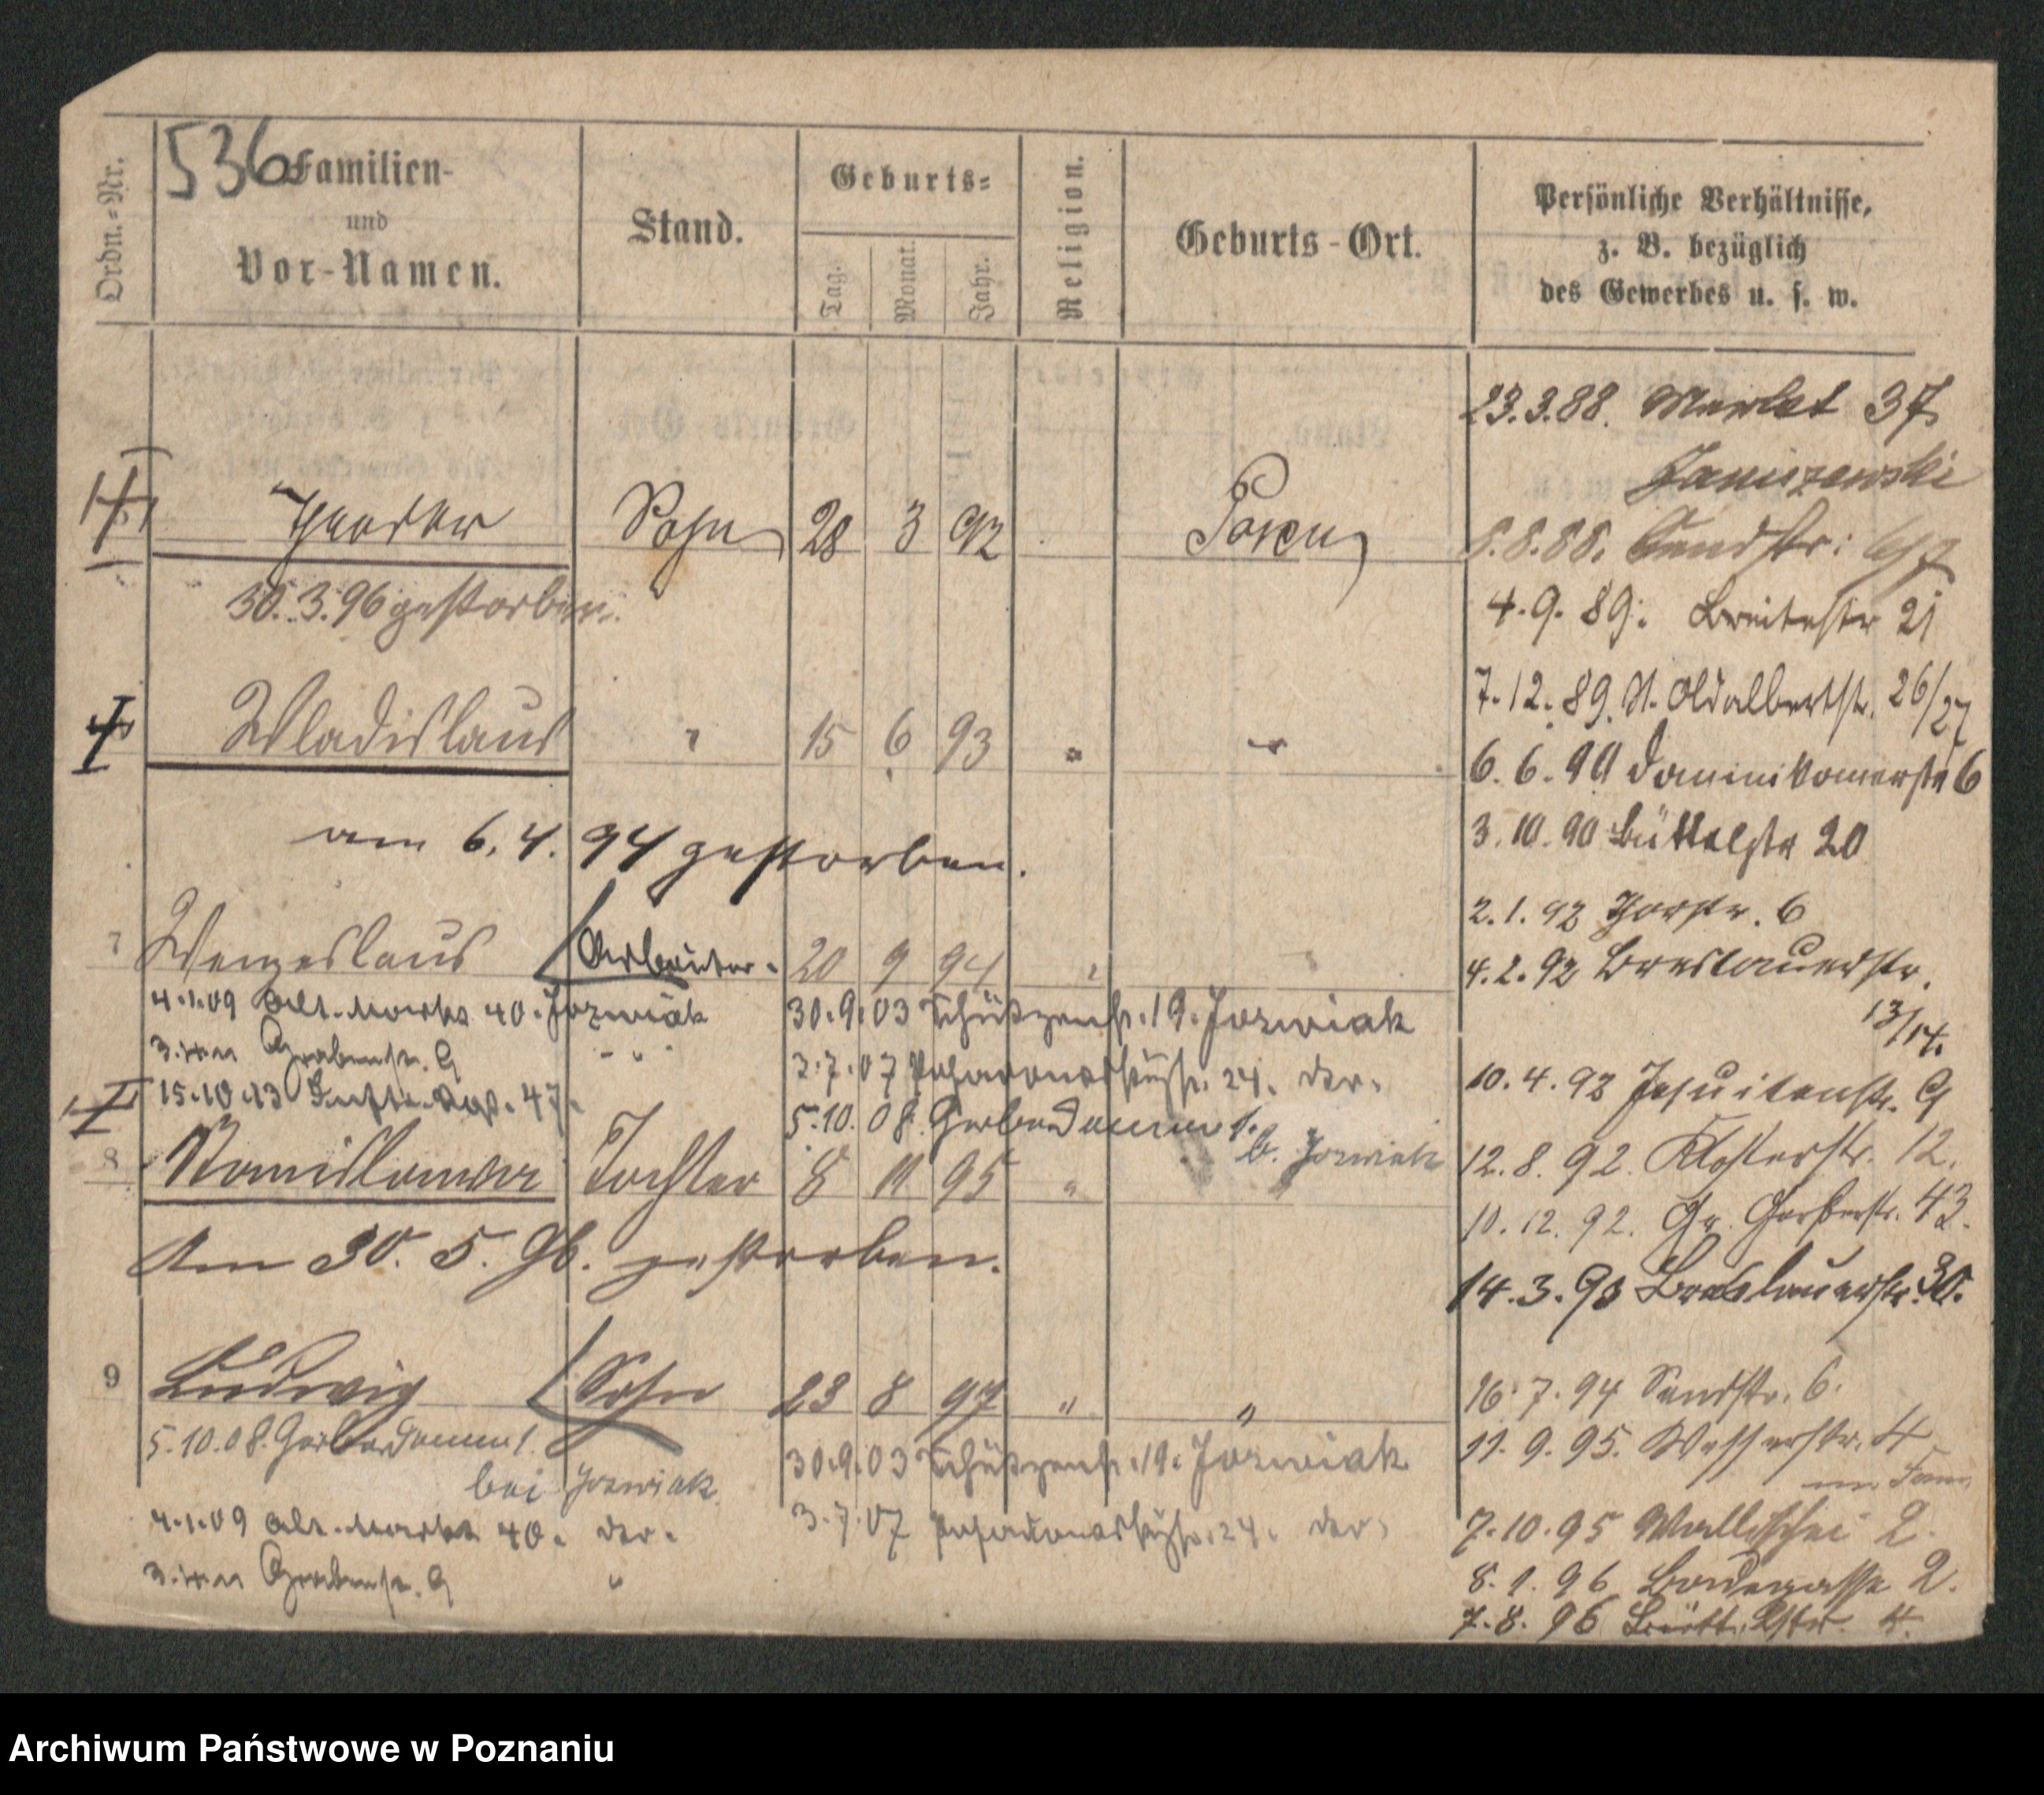 536
Ordn.=Nr.
Familien-
und
Vor-Namen.
Stand.
Geburts=
Tag.
Monat.
Jahr.
Religion.
Geburts-Ort.
Persönliche Verhältnisse,
z. B. bezüglich
des Gewerbes u. s. w.
Sohn 28 3 92 Posen
30.3.96 gestorben.
Wladislaus " 15 6 93 " "
am 6.4.94 gestorben.
7 Wenzeslaus Arbeiter. 20 9 94 "
4.1.09 Alt. Markt 40. Jozwiak
Grabenstr. 9 "
15.10.13 47.
30.9.03 Schützenstr. 19. Jozwiak
3.7.07 24. der.
5.10.08. Gerberdamm 1.
b. Jozwiak
8 Stanislawa Tochter 8 11 95 " "
Am 30. 5. 96. gestorben.
9 Ludwig Sohn 23 8 97 " "
5.10.08. Gerberdamm 1.
bei Jozwiak.
4.1.09 Alt. Markt 40. der.
Grabenstr. 9 "
30.9.03 Schützenstr. 19. Jozwiak
3.7.07 24. der.
23.3.88. Markt 37
Janiszewski
8.8.88. Sandstr:
4.9.89. Breitestr 21
7.12.89. St. Adalbertstr. 26/27
6.6.90 Dominikanerstr 6
3.10.90 Büttelstr 20
2.1.92 Thorstr. 6
4.2.92 Breslauerstr.
13/14.
10.4.92 Jesuitenstr. 9
12.8.92. Klosterstr. 12.
10.12.92. Gr. Gerberstr. 43.
14.3.93 Breslauerstr. 30.
16.7.94 Sandstr. 6.
11.9.95. Wasserstr. 4
7.10.95 Wallischei 2.
8.1.96 Bäckergasse 2.
7.8.96 Büttelstr. 4.
Archiwum Państwowe w Poznaniu